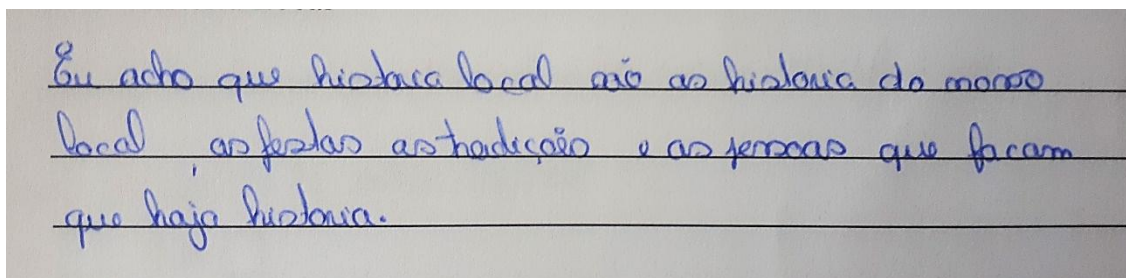 Eu acho que historia local são as historia do nosso
local, as festas as tradição e as pessoas que facam
que haja historia.